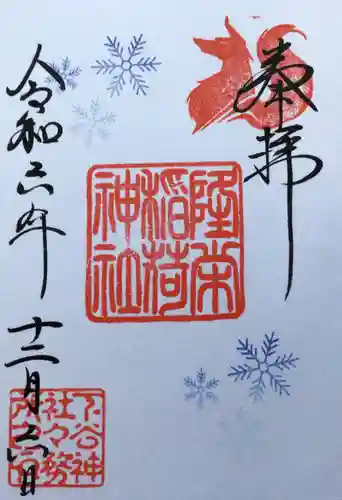 奉拝
隆栄
稲荷
神社
令和六年
十二月六日
下谷神
社々務